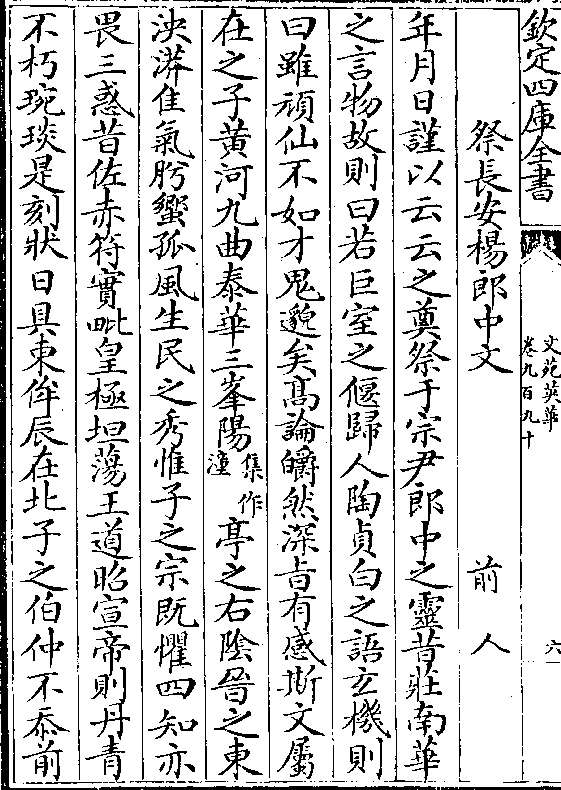 欽定四庫全書
文苑英華
卷九百九十
六
祭長安楊郎中文 前人
年月日謹以云云之奠祭于宗尹郎中之靈昔莊南華
之言物故則曰若巨室之偃歸人陶貞白之語玄機則
曰雖頑仙不如才鬼邈矣高論皭然深旨有感斯文屬
在之子黄河九曲泰華三峯陽集作潼亭之右陰晉之東
泱漭隹氣肹蠁孤風生民之秀惟子之宗既懼四知亦
畏三惑昔佐赤符實毗皇極坦蕩王道昭宣帝則丹青
不朽琬琰是刻狀日具東侔辰在北子之伯仲不忝前